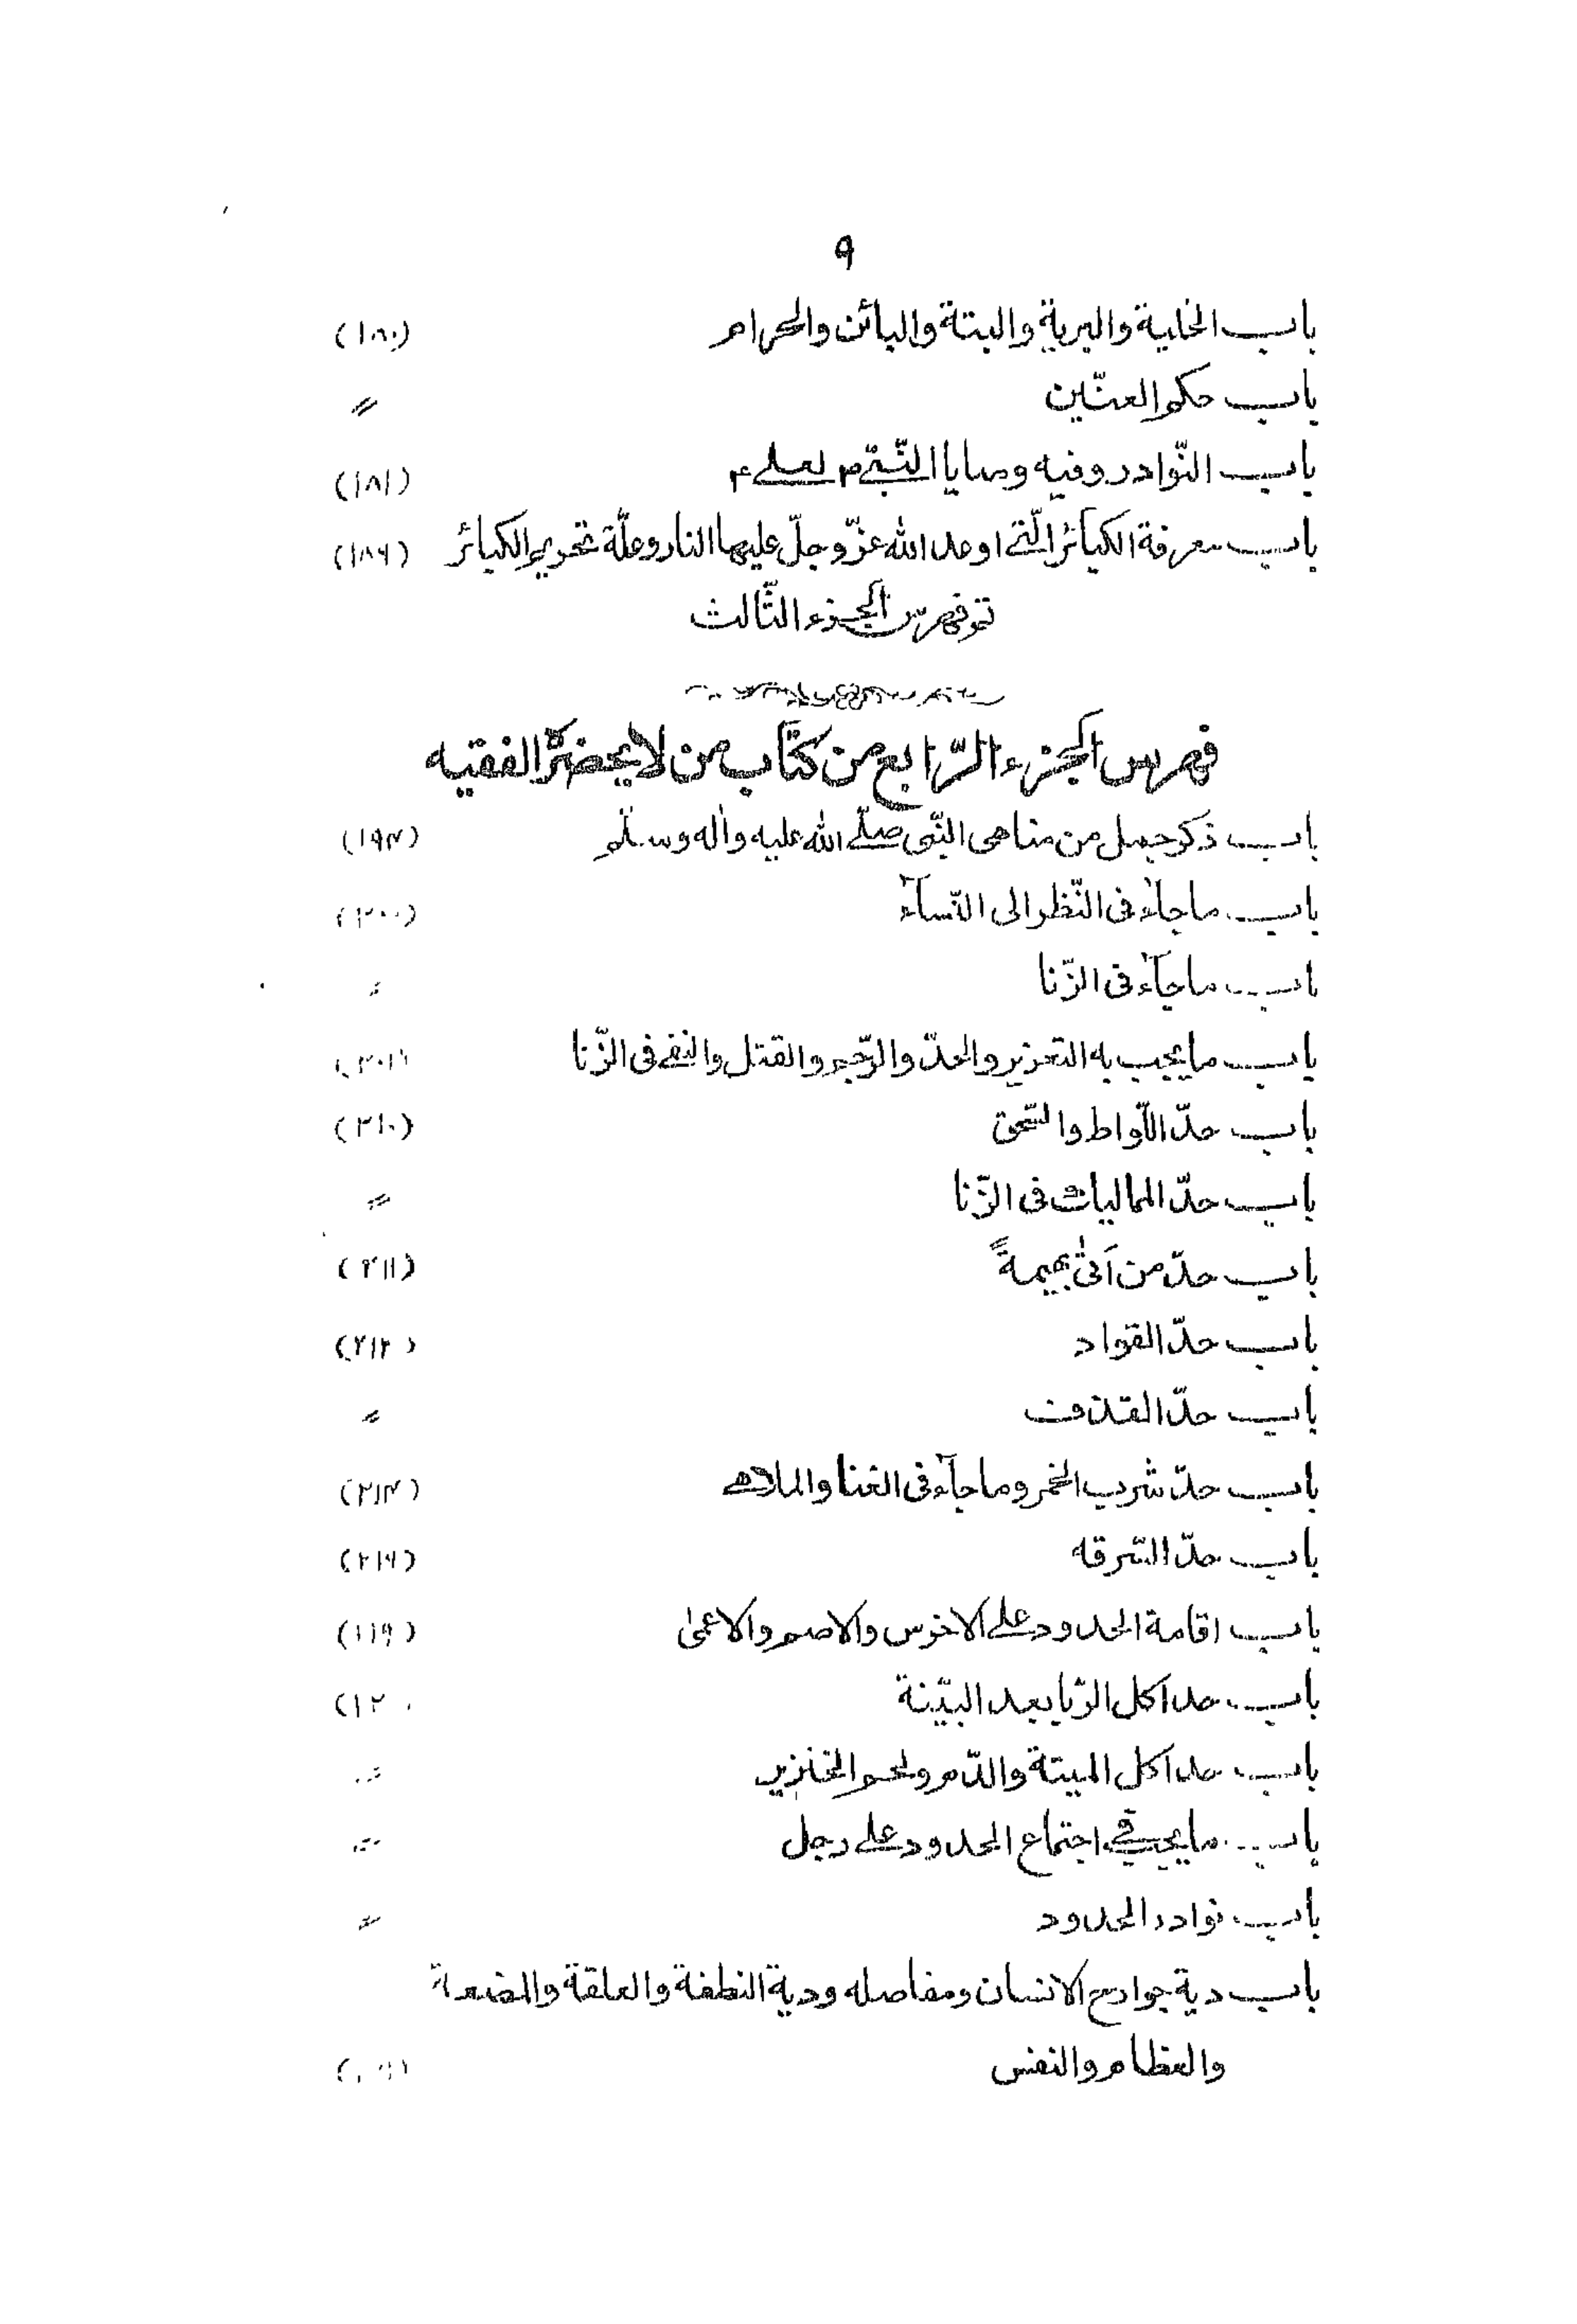 ۹
باب الخلية والبرية والبتة والبائن والحرام (۱۸۰)
باب حكم العنّين ″
باب النّوادر وفيه وصايا النّبيّ ص لعلي ع (۱۸۱)
باب معرفة الكبآئر الّتي اوعد الله عزّوجلّ عليها النار وعلّة تحريم الكبائر (۱۸۶)
تم فهرس الجزء الثّالث
فهرس الجزء الرّابع من كتاب من لا يحضره الفقيه
باب ذكر جمل من مناهى النّبى صلّي الله عليه واٰله وسلّم (۱۹۳)
باب ماجآء فى النّظر الى النّسآء (۲۰۰)
باب ماجآء فى الزّنا ″
باب ما يجب به التعزير والحدّ والرّجم والقتل والنفي فى الزّنا
باب حدّ اللّواط والسّحق (۲۱۰)
باب حدّ المماليك فى الزّنا ″
باب حدّ من اَتىٰ بهيمةً (۲۱۱)
باب حدّ القواد (۲۱۲)
باب حدّ القذف ″
باب حدّ شرب الخمر وماجآء فى الغنا والملاهي (۲۱۳)
باب حدّ السّرقه (۲۱۶)
باب اقامة الحدود علي الاخرس والاصم والاعمىٰ
باب حد اكل الرّبا بعد البيّنة
باب حد اكل الميتة والدّم ولحم الخنزير ″
باب ما يجب في اجتماع الحدود علي رجل ″
باب نوادر الحدود ″
باب دية جوارح الانسان ومفاصله ودية النطفة والعلقة والمضغة
والعظام والنفس